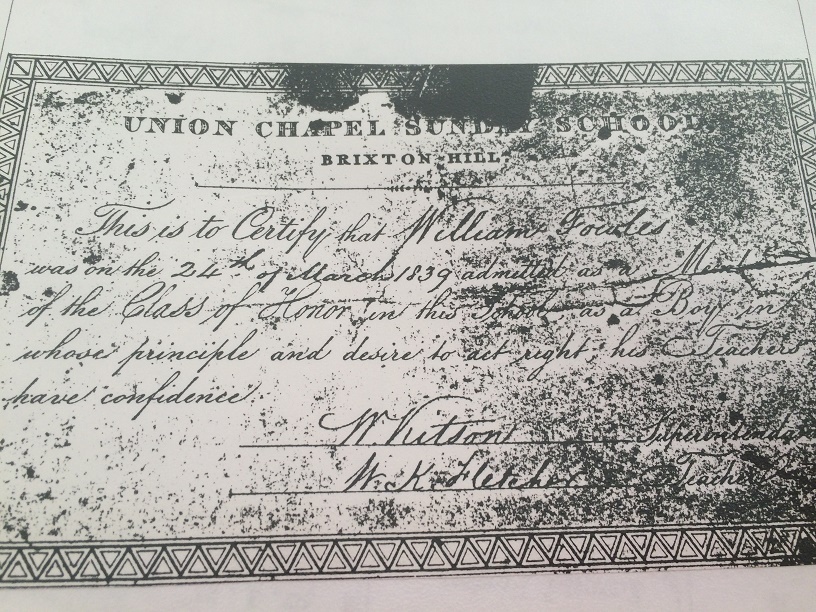 UNION CHAPEL SUNDAY SCHOOL
BRIXTON HILL
This is to Certify that William Fowles
was on the 24th of March 1839 admitted as a Member
of the Class of Honor in this School as a Boy in
whose principle and desire to act right his Teachers
have confidence.
W. Kitson Superintendent
W. K. Fletcher Teacher